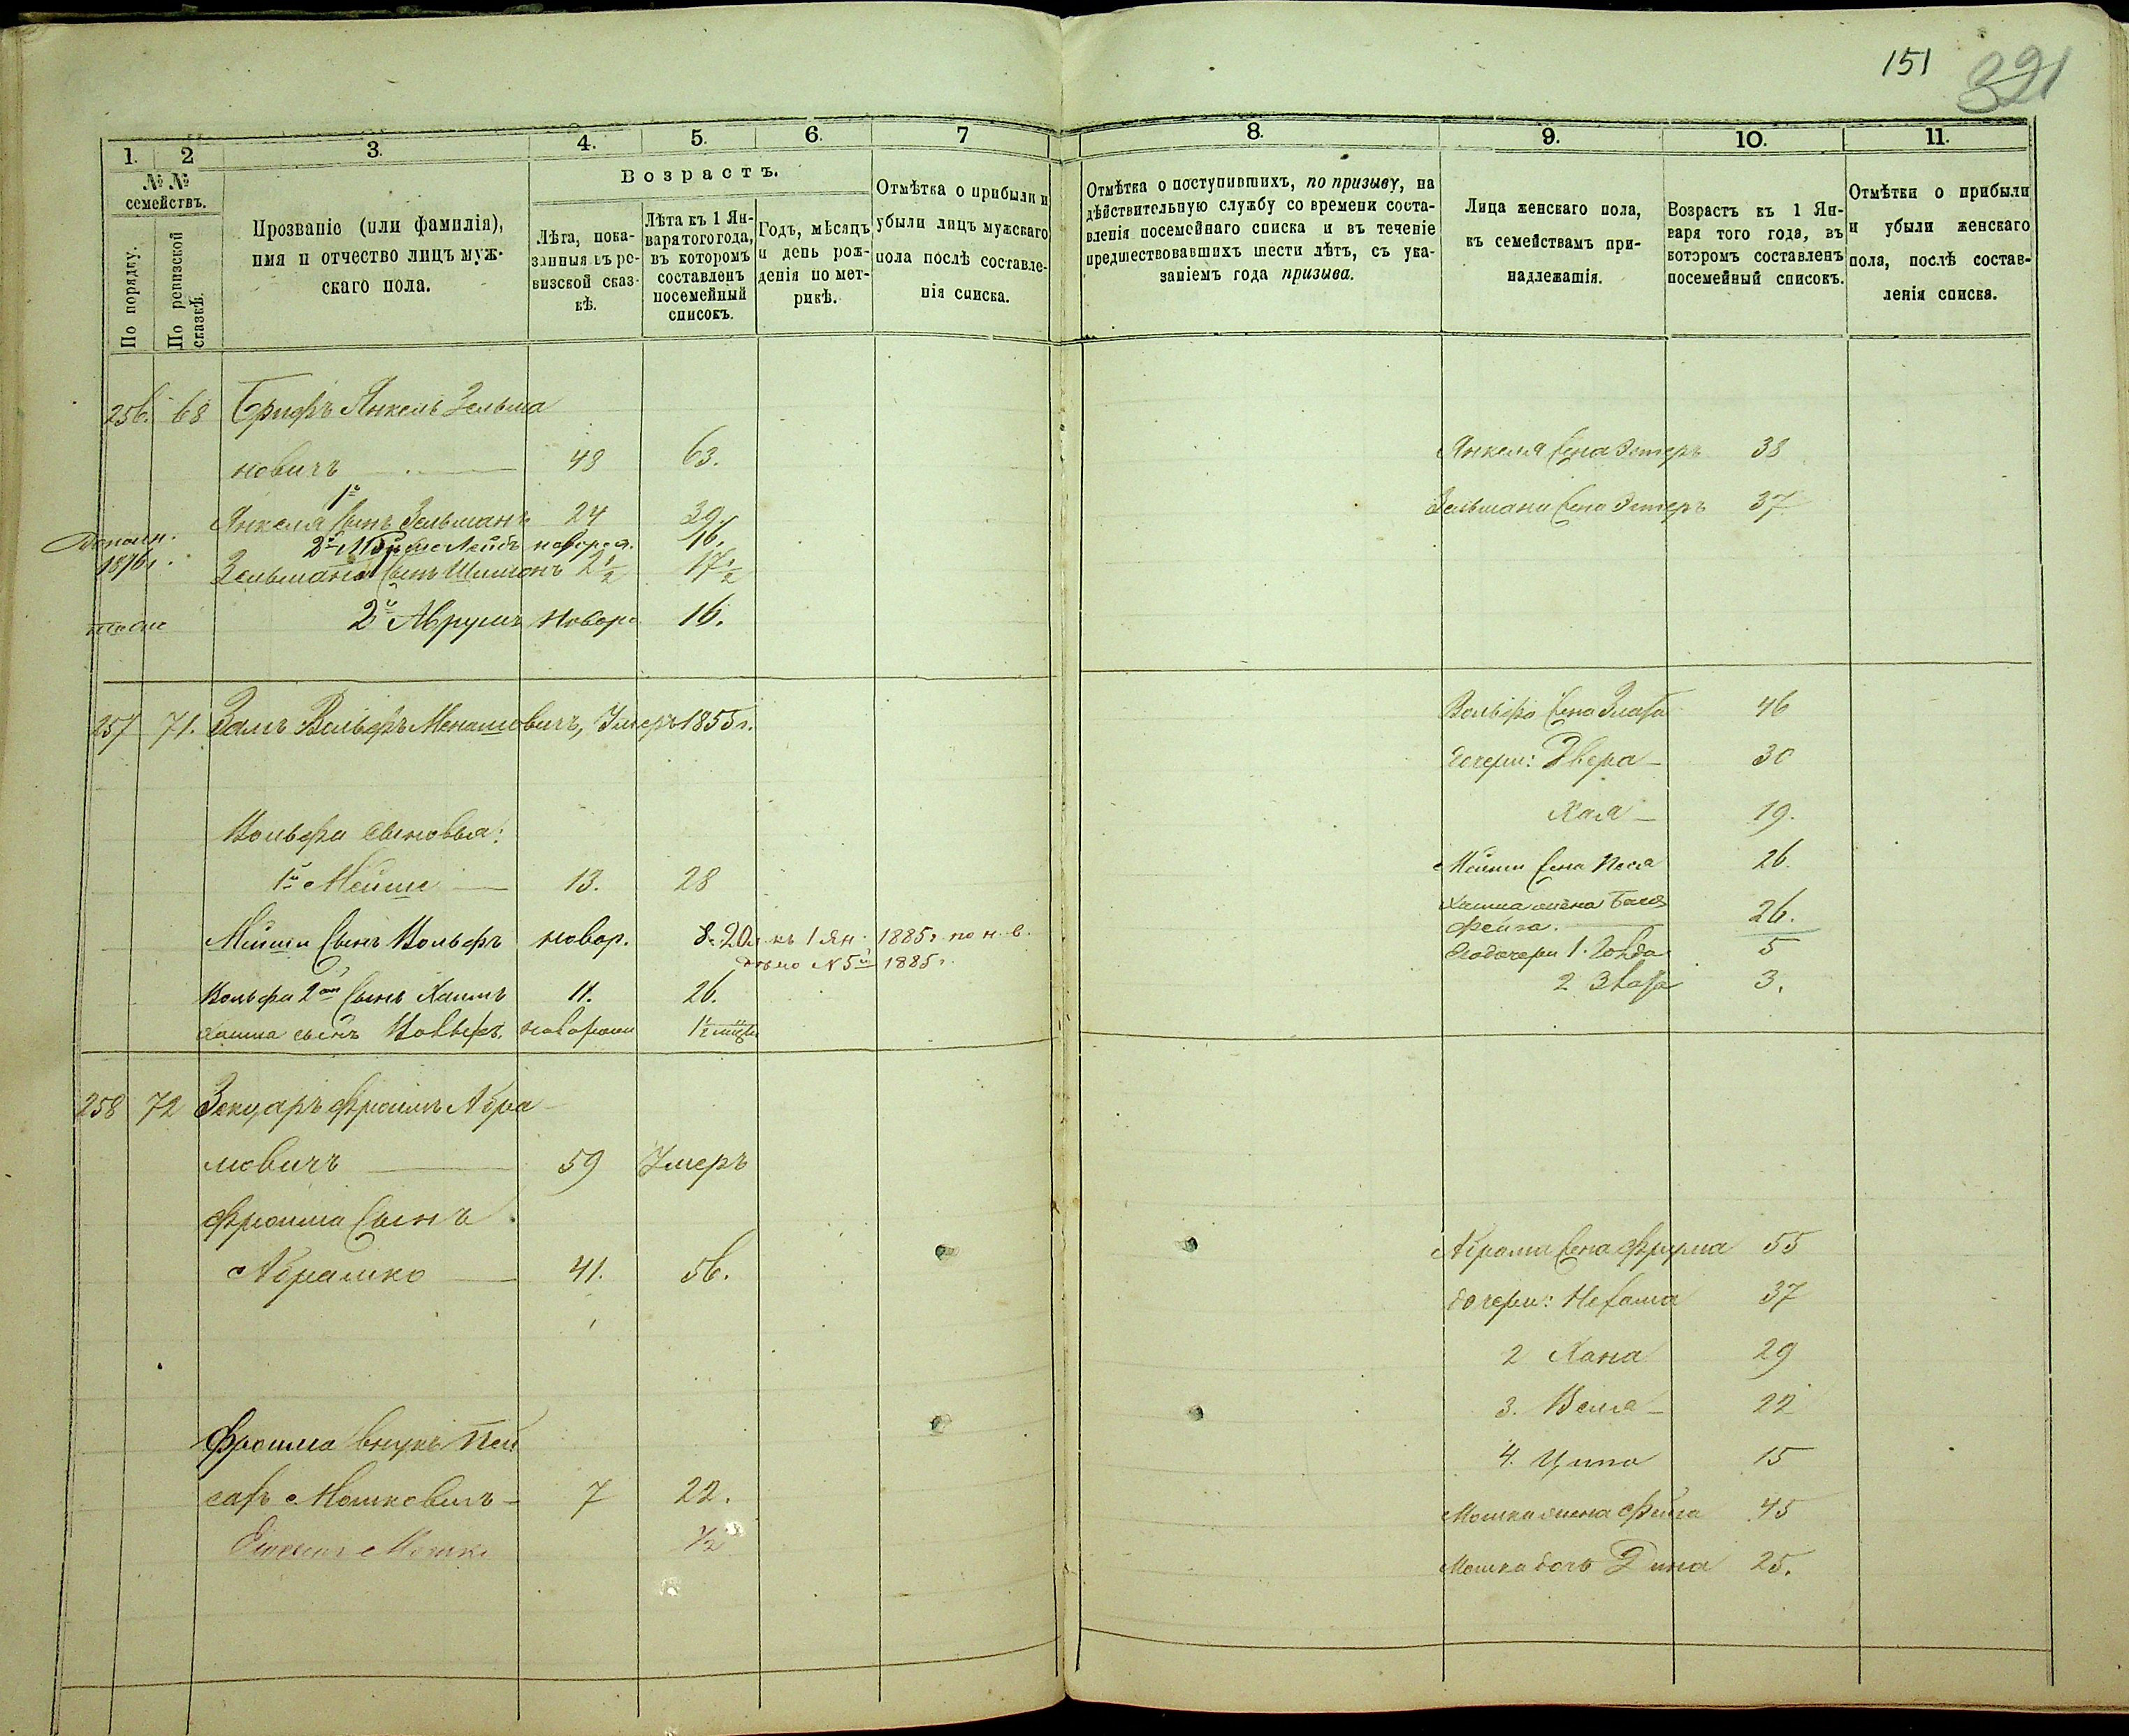 151
321
1.
2
3.
4.
5.
6.
7
№ №
семействъ.
По порядку.
По ревизской сказкѣ.
Прозваніе (или фамилія),
имя и отчество лицъ муж-
скаго пола.
Возрастъ.
Лѣта, пока-
занныя въ ре-
визской сказ-
кѣ.
Лѣта къ 1 Ян-
варя того года,
въ которомъ
составленъ
посемейный
списокъ.
Годъ, мѣсяцъ
и день рож-
денія по мет-
рикѣ.
Отмѣтка о прибыли и
убыли лицъ мужскаго
пола послѣ составле-
нія списка.
256. 68 Брифъ Янкель Зельма
новичъ 48 63.
Янкеля 1й сынъ Зельманъ 24 39.
Дополн. 1876г. 2й Лейбъ новорож. 16.
Зельмана сынъ Шимонъ 2 1/2 17 1/2
тоже 2й Аврумъ новорож 16.
257 71. Залъ Вольфъ Менашовичъ, Умеръ 1855г.
Вольфа сыновья:
1й Мейше 13. 28
Мейши сынъ Вольфъ новор. 8. 20л къ 1 Ян. 1885г. по н. в.
дѣло №5й 1885г.
Вольфа 2ой сынъ Хаимъ 11. 26.
Хаима сынъ Вольфъ новорожд 1 1/2
258 72 Зекцаръ Фроимъ Абра
мовичъ 59 Умеръ
Фроима сынъ
Абрамко 41. 56.
Фроима внукъ Пей
сахъ Мошковичъ 7 22.
Мошко 1/2
8.
9.
10.
11.
Отмѣтка о поступившихъ, по призыву, на
дѣйствительную службу со времени соста-
вленія посемейнаго списка и въ теченіе
предшествовавшихъ шести лѣтъ, съ ука-
заніемъ года призыва.
Лица женскаго пола,
къ семействамъ при-
надлежащія.
Возрастъ къ 1 Ян-
варя того года, въ
которомъ составленъ
посемейный списокъ.
Отмѣтки о прибыли
и убыли женскаго
пола, послѣ состав-
ленія списка.
Янкеля жена Эстеръ 38
Зельмана жена Эстеръ 37
Вольфа жена Злата 46
дочери: Двера 30
Хая 19.
Мейши жена Песа 26
Хаима жена Бася
Фейга. 26.
Его дочери 1. Голда 5
2 Злата 3.
Абрама жена Фрума 55
дочери: Нехама 37
2 Хана 29
3. Вела 22
4. Ципа 15
Мошка жена Фейга 45
Мошка дочь Дина 25.